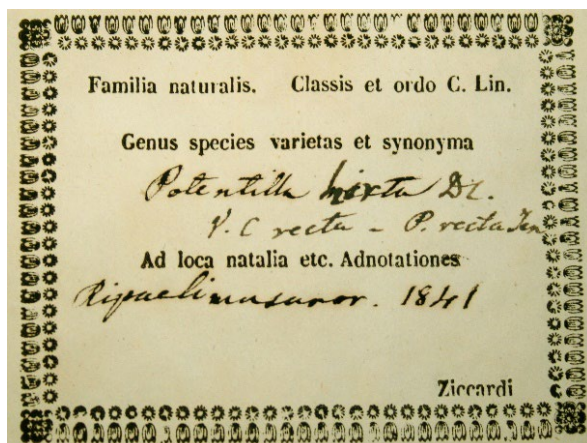 Familia naturalis. Classis et ordo C. Lin.
Genus species varietas et synonyma
Potentilla hirta DC.
V. C recta - P. recta Ten
Ad loca natalia etc. Adnotationes
1841
Ziccardi